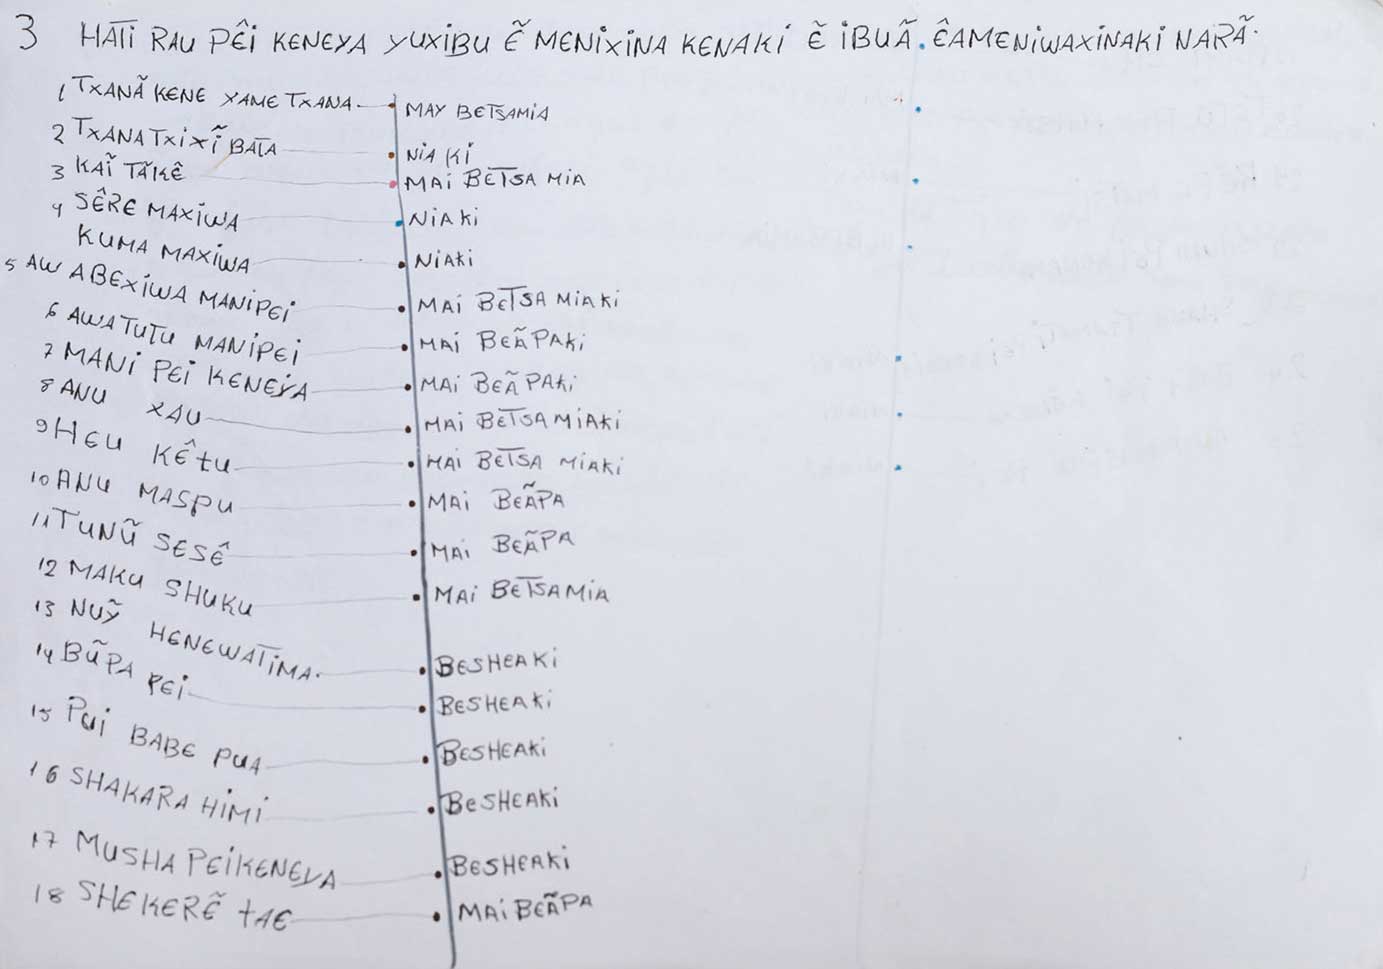 3 HATI RAU PÊI KENEYA YUXIBU Ẽ MENIXINA KENAKI Ẽ IBUÃ. ÊAMENIWAXINAKI NARÃ.
1 TXANÃ KENE XAME TXANA MAY BETSAMIA
2 TXANA TXIXĨ BATA NIA KI
3 KAĨ TÃKÊ MAI BETSA MIA
4 SÊRE MAXIWA NIAKI
KUMA MAXIWA NIAKI
5 AW ABEXIWA MANIPEI MAI BETSA MIAKI
6 AWA TUTU MANIPEI MAI BEÃPAKI
7 MANI PEI KENEYA MAI BEÃ PAKI
8 ANU XAU MAI BETSA MIAKI
9 HEU KÊTU MAI BETSA MIAKI
10 ANU MASPU MAI BEÃPA
11 TUNŨ SESÊ MAI BEÃPA
12 MAKU SHUKU MAI BETSAMIA
13 NUỸ HENEWATIMA. BESHEAKI
14 BŨPA PEI BESHEAKI
15 PUI BABE PUA BESHEAKI
16 SHAKARA HIMI BESHEAKI
17 MUSHA PEIKENEYA BESHEAKI
18 SHEKERẼ TAE MAI BEÃPA